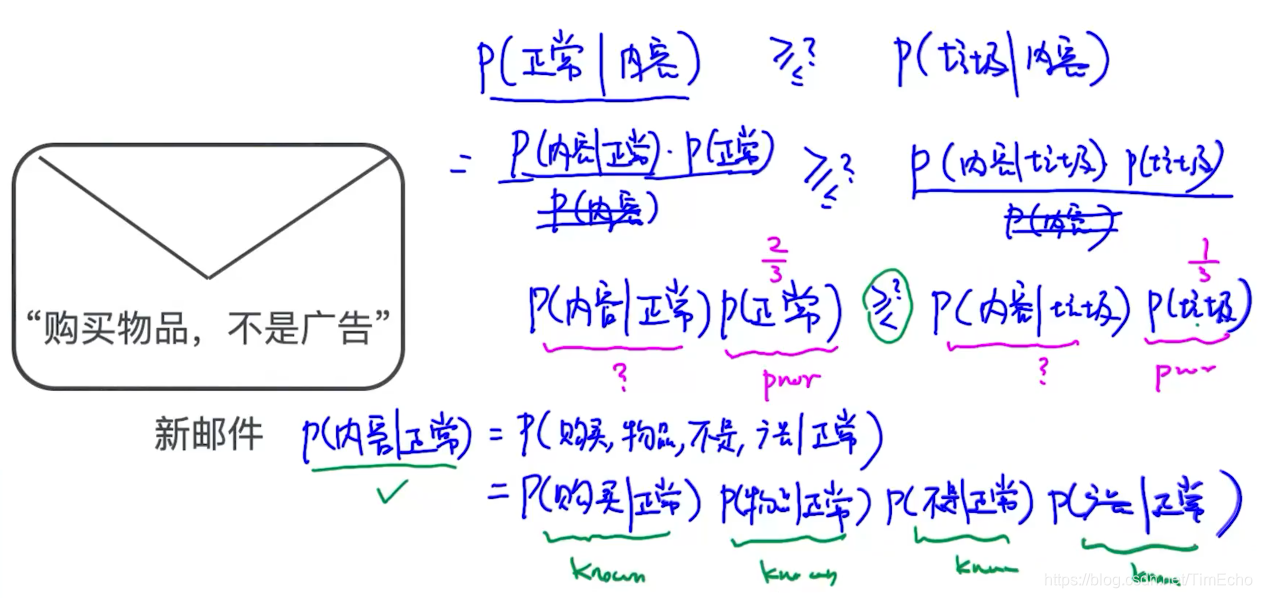 P(正常|内容) ≥≤? P(垃圾|内容)
= P(内容|正常)·P(正常) / P(内容) ≥≤? P(内容|垃圾) P(垃圾) / P(内容)
2/3 1/3
P(内容|正常) P(正常) ≥≤? P(内容|垃圾) P(垃圾)
? prior ? prior
“购买物品，不是广告”
新邮件
P(内容|正常) = P(购买,物品,不是,广告|正常)
✓
= P(购买|正常) P(物品|正常) P(不是|正常) P(广告|正常)
known known known
https://blog.csdn.net/TimEcho